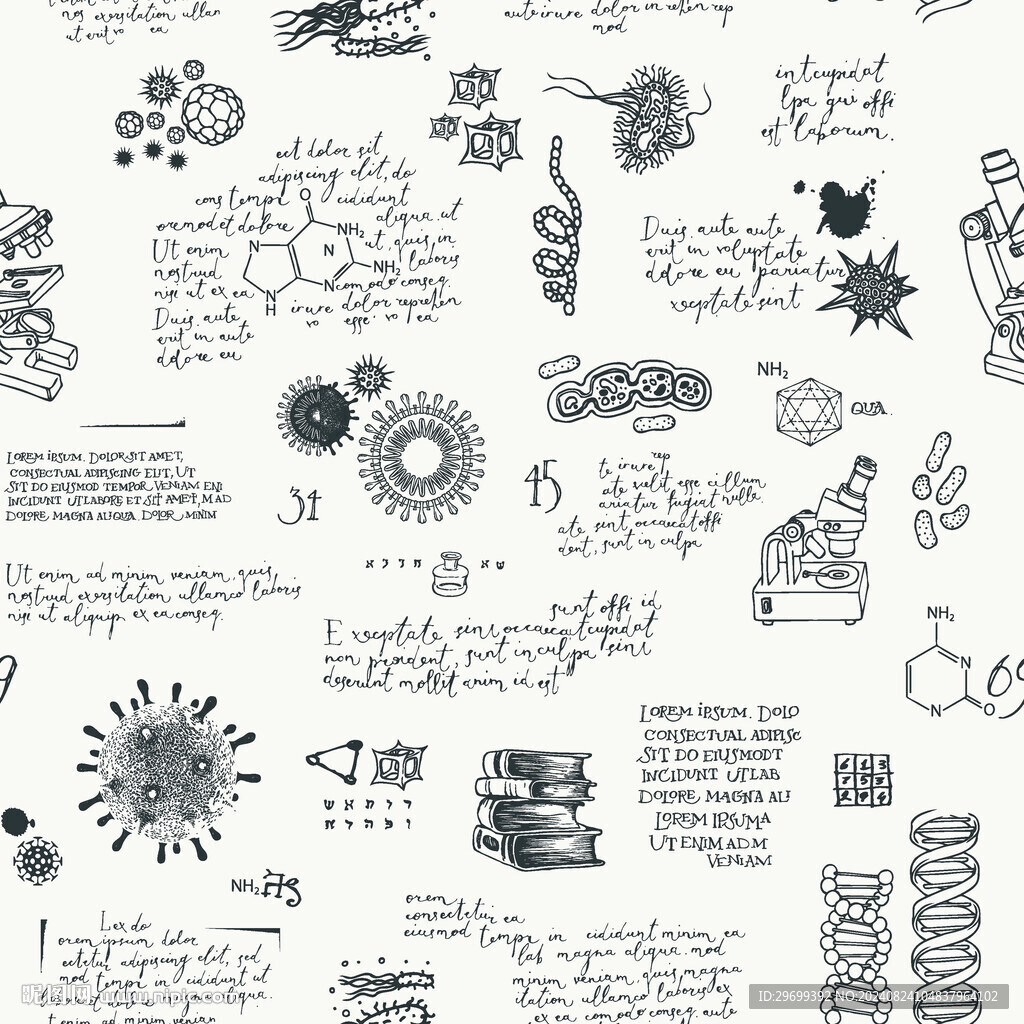 nos exersitation ullan
ut erit vo ea
aute irure dolor in rehen rep
mod
intcupidat
lpa qui offi
est laborum.
ect dolor sit
adipiscing elit, do
cons tempr
cididunt
oremodet dolore
aliqua. ut
Ut enim
ut, quis, in
nostrud
laboris
nisi ut ex ea
comodo conseq.
Duis aute
irure dolor reprehen
erit in aute
vo esse vo ea
dolore eu
O
NH₂
N
N
NH₂
N
N
H
Duis aute aute
erit in voluptate
dolore eu pariatur
xceptate sint
NH₂
QUA.
LOREM IPSUM. DOLOR SIT AMET,
CONSECTUAL ADIPISCING ELIT, UT
SIT DO EIUSMOD TEMPOR VENIAM ENI
INCIDUNT UT LABORE ET SIT AMET, M AD
DOLORE MAGNA ALIQUA. DOLOR MINIM
34
45
te irure rep
ate velit esse cillum
ariatur fugiat nulle
ate sint occaecat offi
dent, sunt in culpa
Ut enim ad minim veniam, quis
nostrud exersitation ullamco laboris
nisi ut aliquip ex ea conseq.
sunt offi id
E xceptate sint occaecatcupidat
non proident, sunt in culpa sint
deserunt mollit anim id est
NH₂
N
N
O
69
LOREM IPSUM. DOLO
CONSECTUAL ADIPISC
SIT DO EIUSMODT
INCIDUNT UTLAB
DOLORE MAGNA ALI
LOREM IPSUMA
UT ENIM ADM
VENIAM
6 1 3
7 5 3
2 9 4
NH₂
Lex do
orem ipsum dolor
ectetur adipiscing elit, sed
mod tempr in cididunt ut
orem
consectetur ea
eiusmod tempr in cididunt minim ea
lab magna aliqua. mod
minim veniam, quis, magna
itation ullamco laboris ex
ex ea comodo conseq. aute
昵图网 www.nipic.com
ID:29699392 NO:20240824104837964102